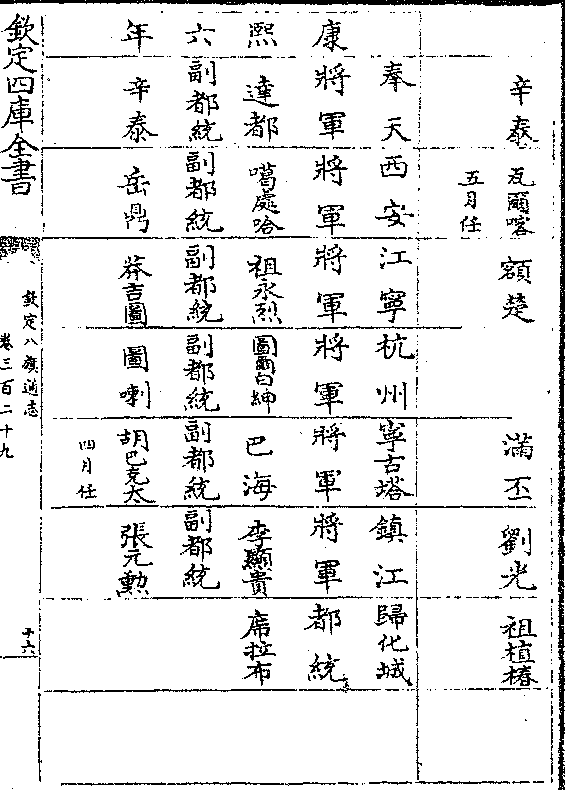 辛泰 瓦爾喀 五月任 額楚 滿丕 劉光 祖植椿
奉天 西安 江寧 杭州 寧古塔 鎮江 歸化城
康 將軍 將軍 將軍 將軍 將軍 將軍 都統
熙 達都 噶處哈 祖永烈 圖爾白紳 巴海 李顯貴 席拉布
六 副都統 副都統 副都統 副都統 副都統 副都統
年 辛泰 岳鼎 莽吉圖 圖喇 胡巴克太 四月任 張元勲
欽定四庫全書
欽定八旗通志
卷三百二十九
十六